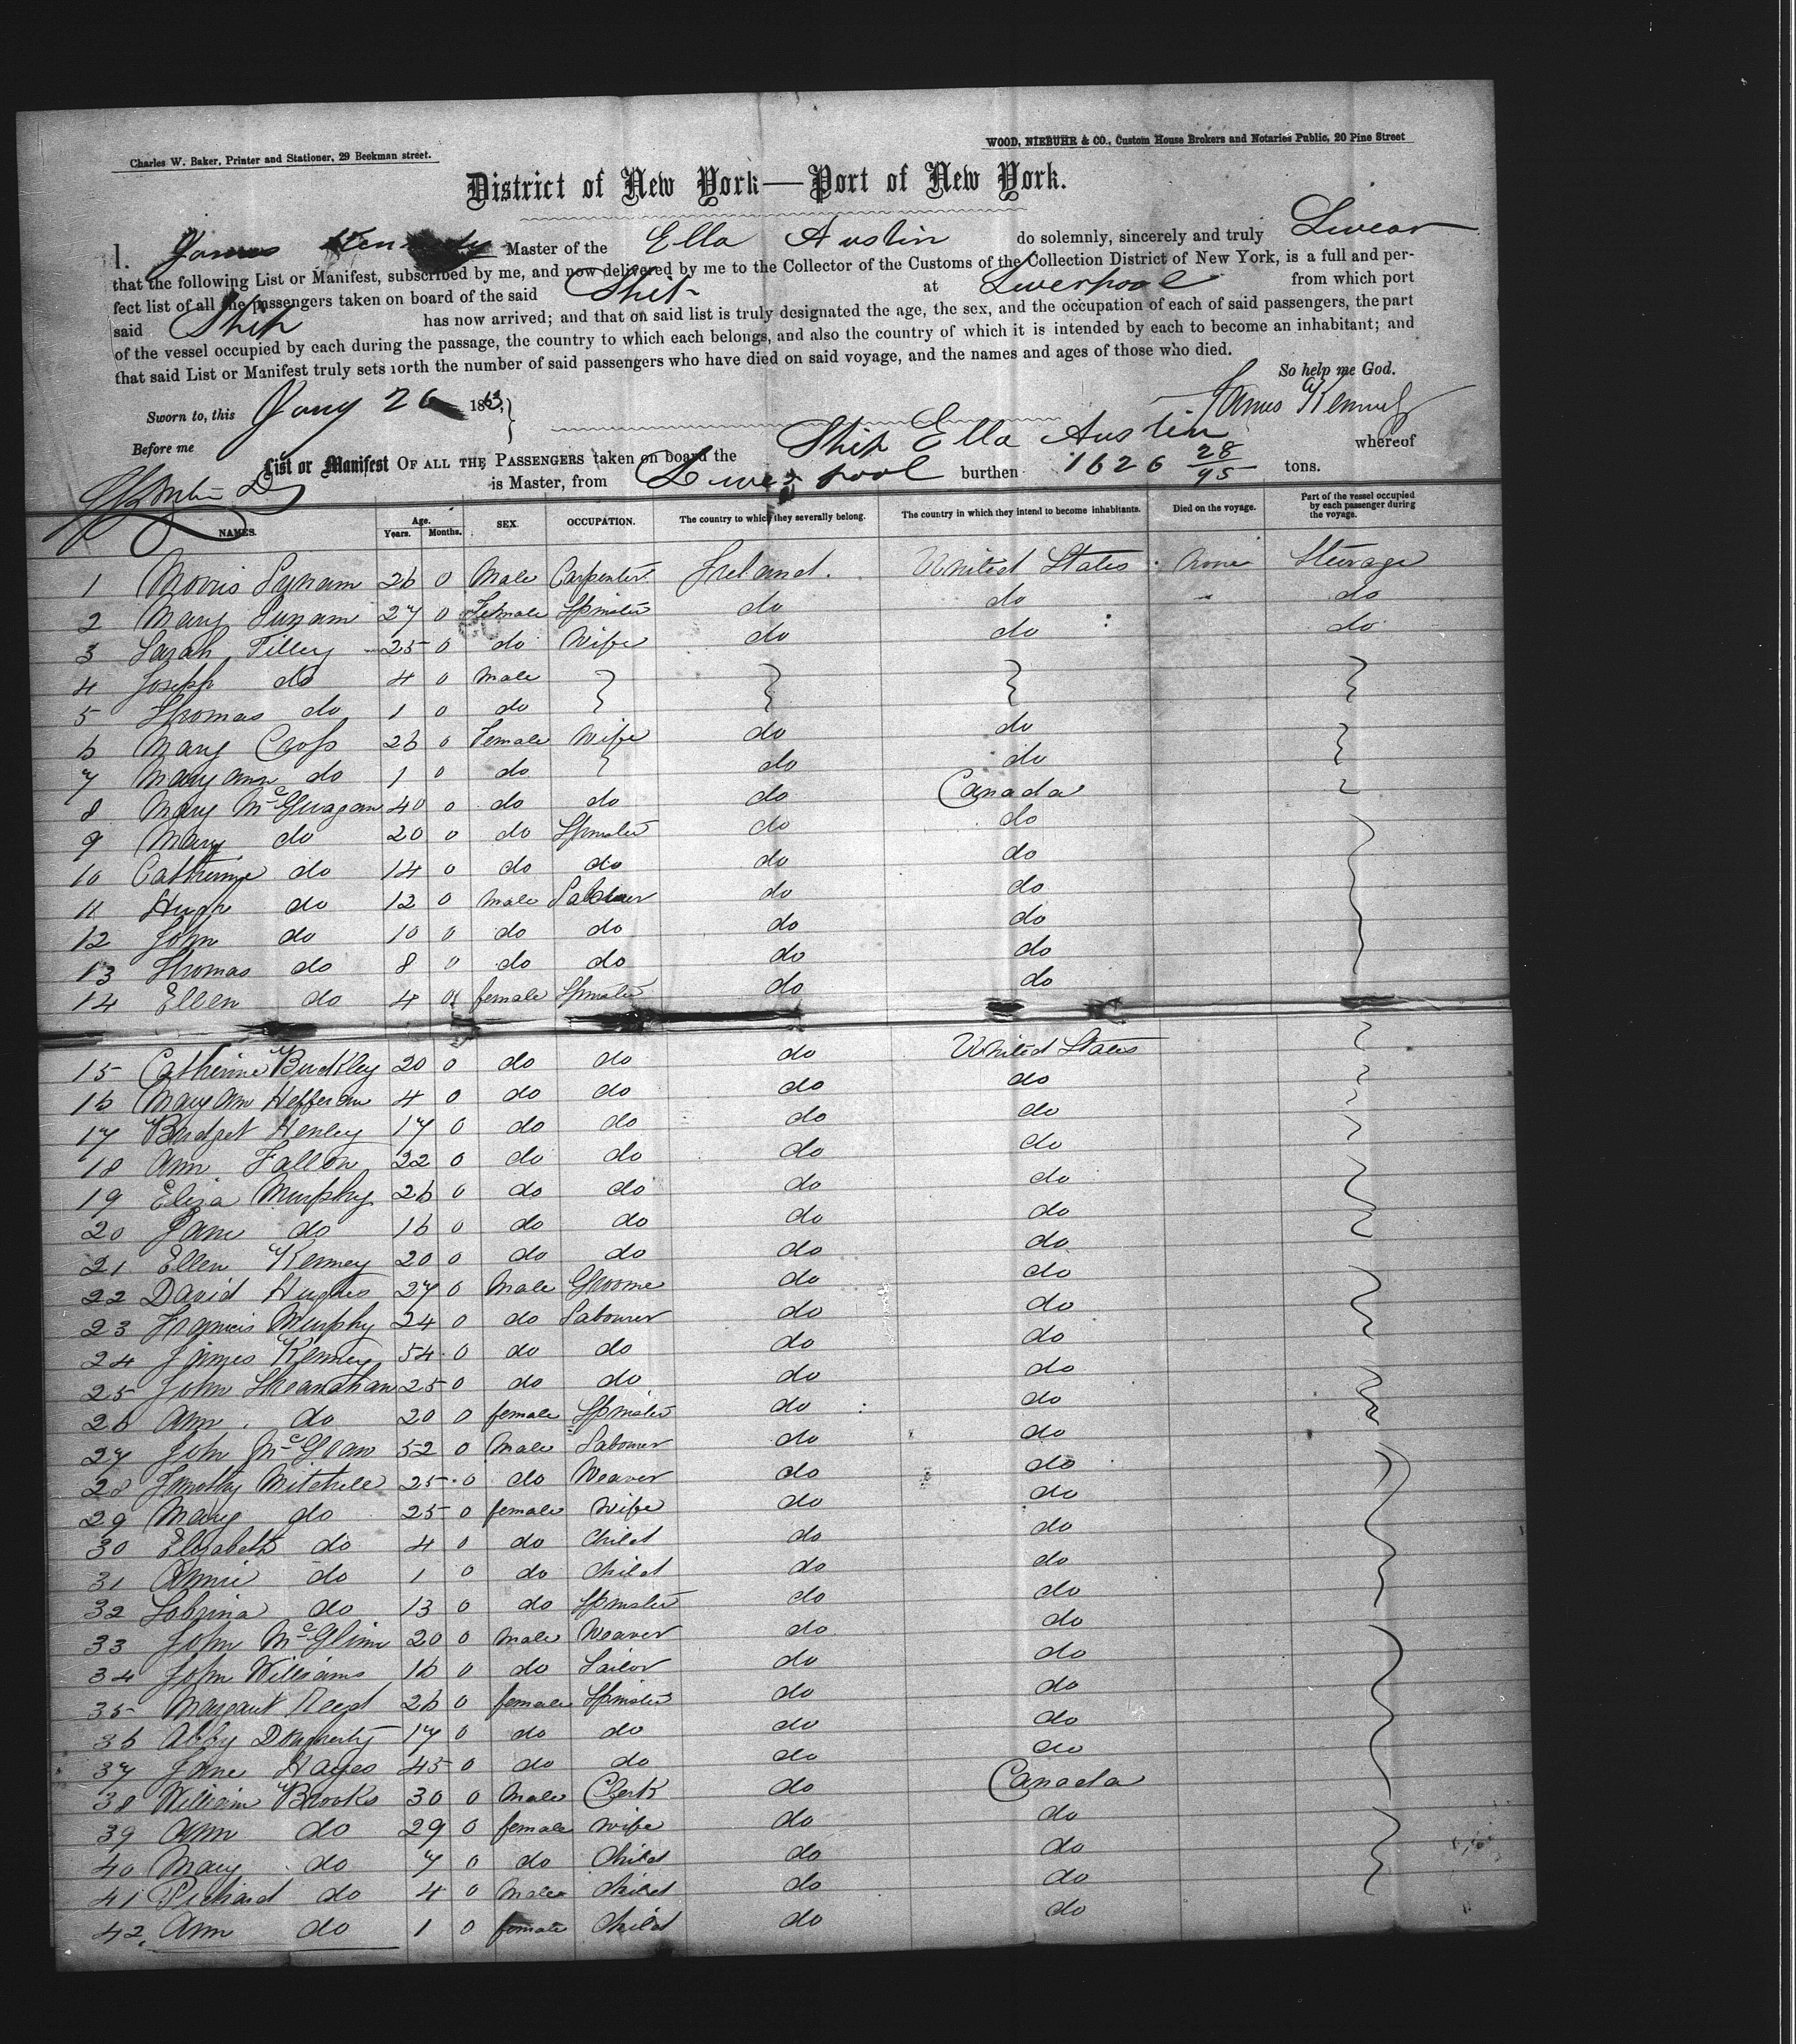 Charles W. Baker, Printer and Stationer, 29 Beekman street.
WOOD, NIEBUHR & CO., Custom House Brokers and Notaries Public, 20 Pine Street
District of New York—Port of New York.
I. James Kennedy Master of the Ella Austin do solemnly, sincerely and truly Swear
that the following List or Manifest, subscribed by me, and now delivered by me to the Collector of the Customs of the Collection District of New York, is a full and per-
fect list of all the passengers taken on board of the said Ship at Liverpool from which port
said Ship has now arrived; and that on said list is truly designated the age, the sex, and the occupation of each of said passengers, the part
of the vessel occupied by each during the passage, the country to which each belongs, and also the country of which it is intended by each to become an inhabitant; and
that said List or Manifest truly sets forth the number of said passengers who have died on said voyage, and the names and ages of those who died.
So help me God.
Sworn to, this Jany 26 1863, James Kennedy
Before me
List or Manifest OF ALL THE PASSENGERS taken on board the Ship Ella Austin whereof
is Master, from Liverpool burthen 1626 28/95 tons.
NAMES. Age. Years. Months. SEX. OCCUPATION. The country to which they severally belong. The country in which they intend to become inhabitants. Died on the voyage. Part of the vessel occupied by each passenger during the voyage.
1 Morris Lynam 26 0 Male Carpenter Ireland. United States None Steerage
2 Mary Lynam 27 0 Female Spinster do do do
3 Sarah Tilley 25 0 do Wife do do do
4 Joseph do 4 0 Male
5 Thomas do 1 0 do
6 Mary Cross 26 0 Female Wife do do
7 Mary Ann do 1 0 do do do
8 Mary 40 0 do do do Canada
9 Mary do 20 0 do Spinster do do
10 Catherine do 14 0 do do do do
11 Hugh do 12 0 Male Labourer do do
12 John do 10 0 do do do do
13 Thomas do 8 0 do do do do
14 Ellen do 4 0 female Spinster do do
15 Catherine Buckley 20 0 do do do United States
16 Mary Ann Heffernan 4 0 do do do do
17 Bridget Henley 17 0 do do do do
18 Ann Fallon 22 0 do do do do
19 Eliza Murphy 26 0 do do do do
20 Jane do 16 0 do do do do
21 Ellen Kenney 20 0 do do do do
22 David Hughes 27 0 Male Groome do do
23 Francis Murphy 24 0 do Labourer do do
24 James Kenney 54 0 do do do do
25 John Sheanahan 25 0 do do do do
26 Ann do 20 0 female Spinster do do
27 John 52 0 Male Labourer do do
28 Timothy Mitchell 25 0 do Weaver do do
29 Mary do 25 0 female Wife do do
30 Elizabeth do 4 0 do Child do do
31 Annie do 1 0 do Child do do
32 Sobrina do 13 0 do Spinster do do
33 John McGlinn 20 0 Male Weaver do do
34 John Williams 16 0 do Sailor do do
35 Margaret Reed 26 0 female Spinster do do
36 Abby Dougherty 17 0 do do do do
37 Jane Hayes 45 0 do do do do
38 William Brooks 30 0 Male Clerk do Canada
39 Ann do 29 0 female Wife do do
40 Mary do 7 0 do Child do do
41 Richard do 4 0 Male Child do do
42. Ann do 1 0 female Child do do